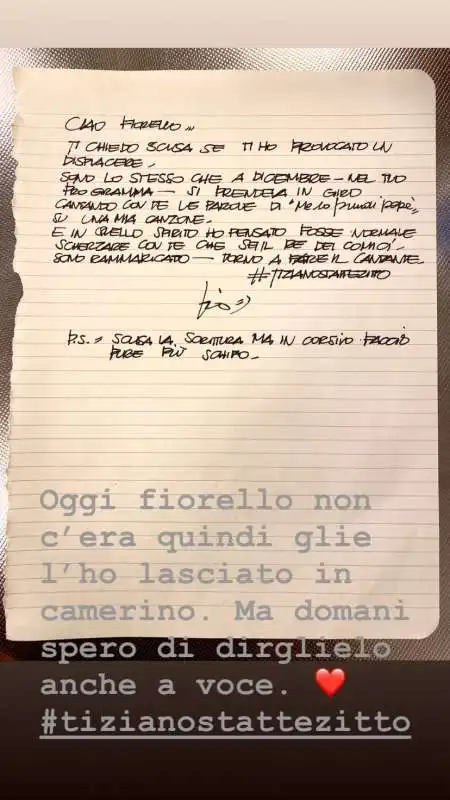 CIAO FIORELLO...
TI CHIEDO SCUSA SE TI HO PROVOCATO UN
DISPIACERE.
SONO LO STESSO CHE A DICEMBRE - NEL TUO
PROGRAMMA - SI PRENDEVA IN GIRO
CANTANDO CON TE LE PAROLE DI "Me lo prendi papè"
SU UNA MIA CANZONE.
E IN QUELLO SPIRITO HO PENSATO FOSSE NORMALE
SCHERZARE CON TE CHE SEI IL RE DEI COMICI.
SONO RAMMARICATO - TORNO A FARE IL CANTANTE
#TIZIANOSTATTEZITTO
P.S. = SCUSA LA SCRITTURA MA IN CORSIVO FACCIO
PURE PIÙ SCHIFO -
Oggi fiorello non
c'era quindi glie
l'ho lasciato in
camerino. Ma domani
spero di dirglielo
anche a voce. ❤️
#tizianostattezitto